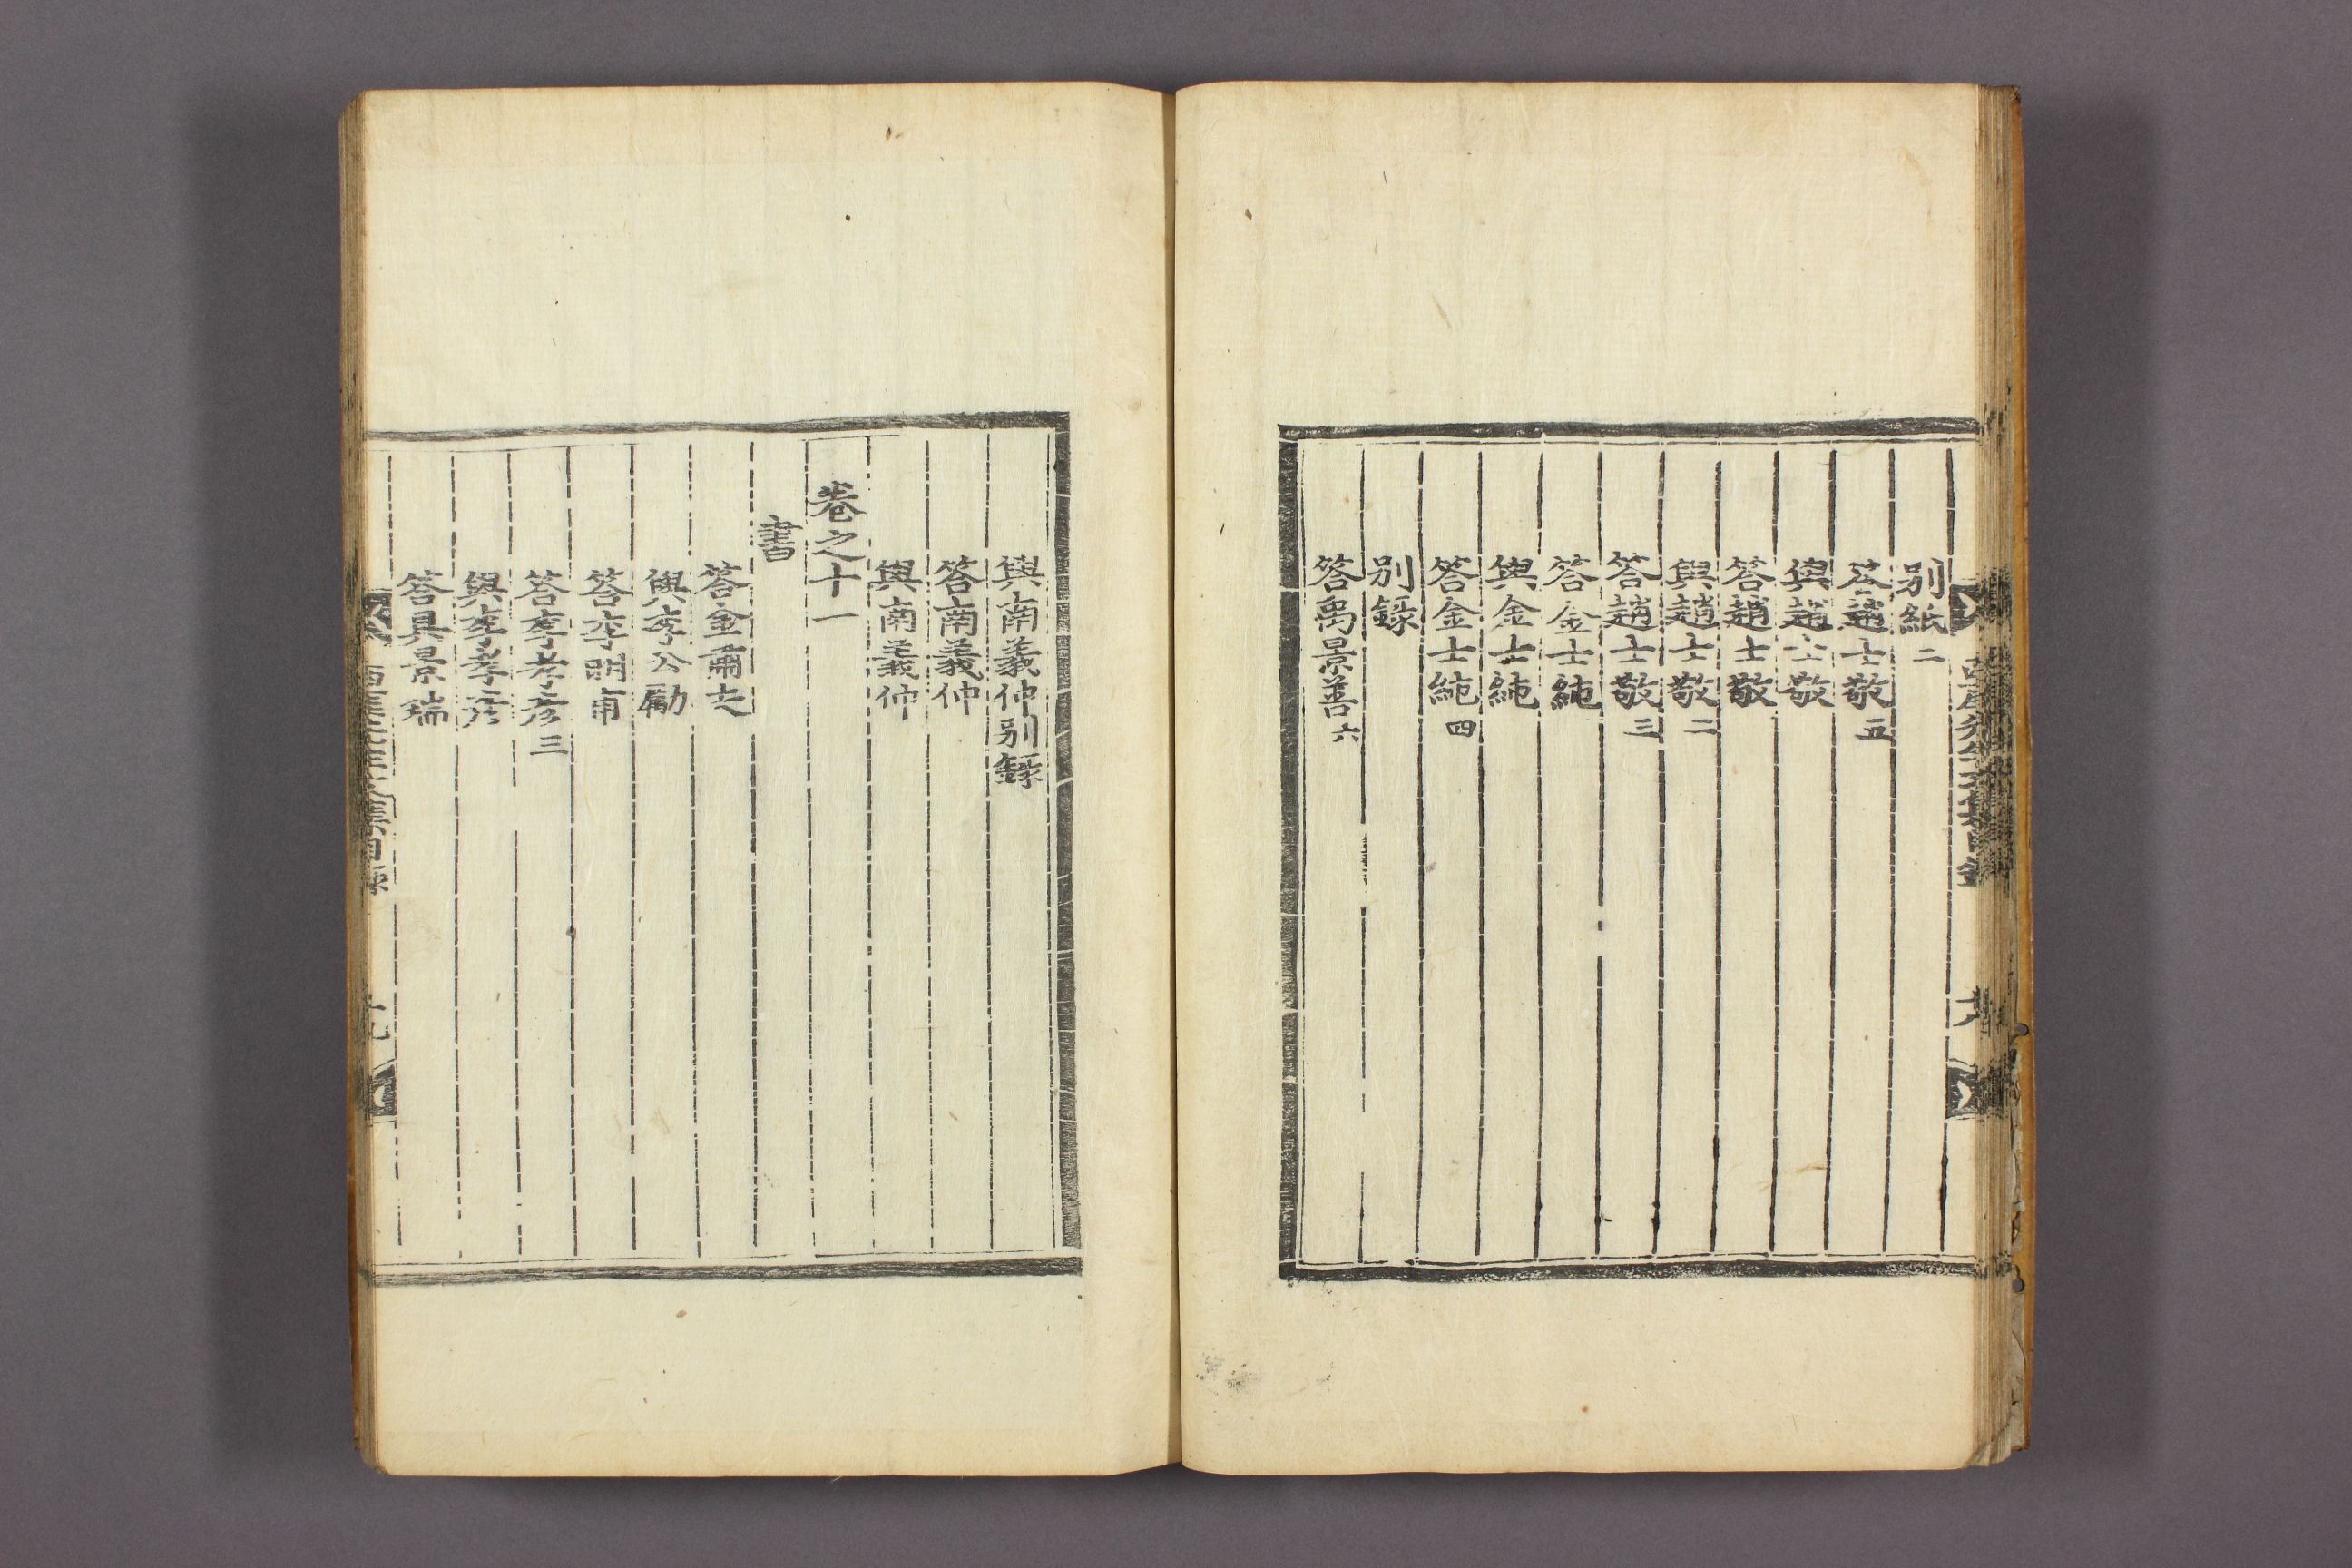 別紙二
答趙士敬五
與趙士敬
答趙士敬
與趙士敬二
答趙士敬三
答金士純
與金士純
答金士純四
別錄
答禹景善六
與南義仲別錄
答南義仲
與南義仲
卷之十一
書
答金肅夫
與李公勵
答李明甫
答李孝彥三
與李孝彥
答具景瑞